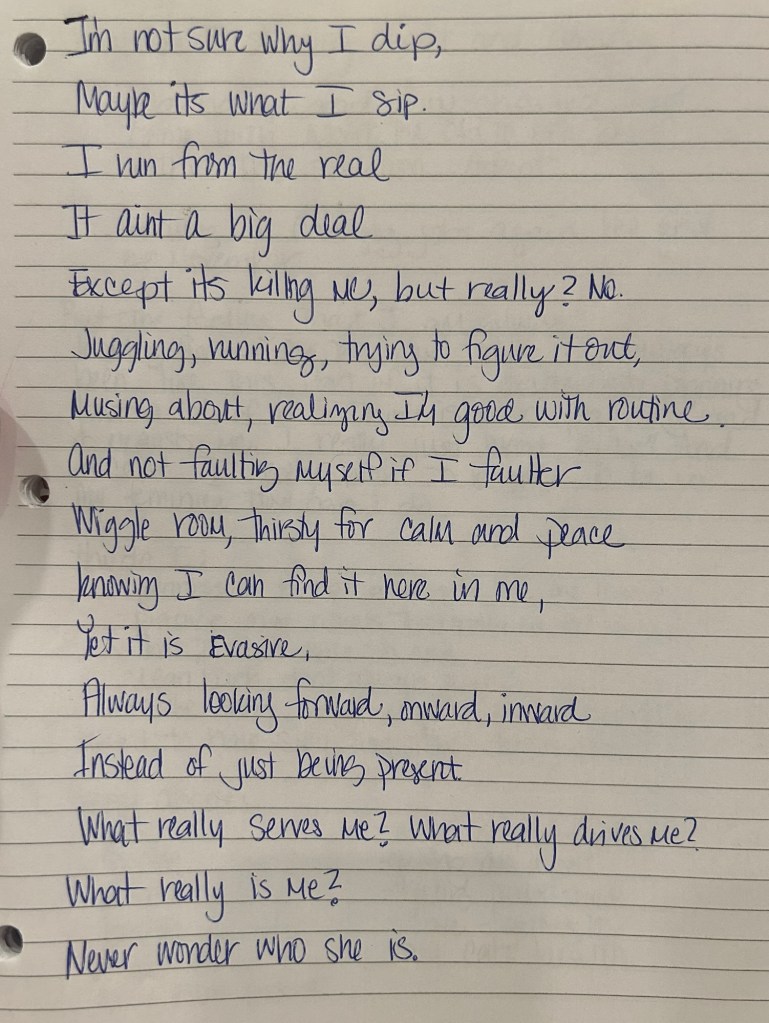 I'm not sure why I dip,
Maybe its what I sip.
I run from the real
It aint a big deal
Except its killing me, but really? No.
Juggling, running, trying to figure it out,
Musing about, realizing I'm good with routine.
And not faulting myself if I faulter
Wiggle room, thirsty for calm and peace
knowing I can find it here in me,
Yet it is Evasive,
Always looking forward, onward, inward
Instead of just being present
What really serves me? What really drives me?
What really is me?
Never wonder who she is.